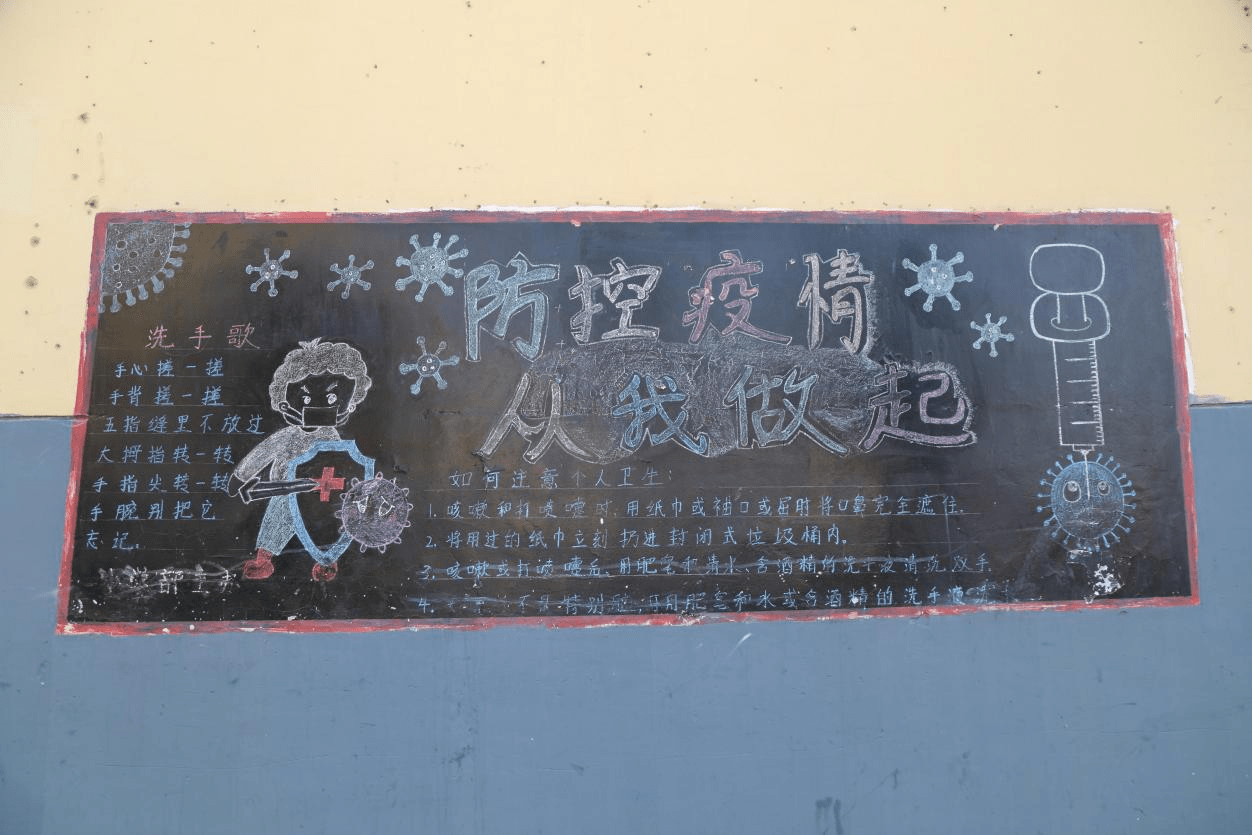 防控疫情
从我做起
洗手歌
手心搓一搓
手背搓一搓
五指缝里不放过
大拇指转一转
手指尖转一转
手腕别把它
忘记。
如何注意个人卫生:
1. 咳嗽和打喷嚏时,用纸巾或袖口或屈肘将口鼻完全遮住。
2. 将用过的纸巾立刻扔进封闭式垃圾桶内。
3. 咳嗽或打喷嚏后,用肥皂和清水、含酒精的洗手液清洗双手
4. 不是特别脏,可用肥皂和水或含酒精的洗手液